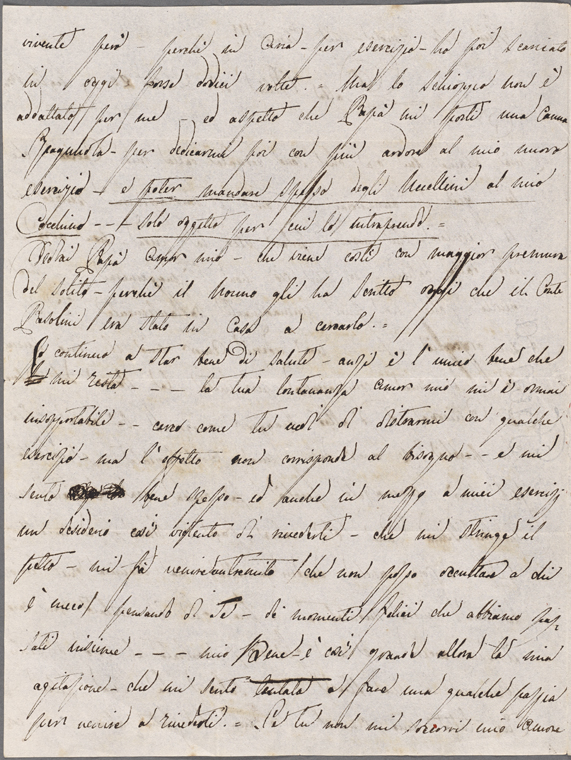 vivente però - perchè in aria - per esercizio - ho poi scaricato
in oggi forse dodici volte. - Ma lo schioppo non è
addattato per me ed aspetto che Papà mi porti una Canna
Spagnuola - per dedicarmi poi con più ardore al mio nuovo
esercizio - e poter mandare spesso degli Uccellini al mio
Cocchino - - solo oggetto per cui lo intraprendo. =
Papà amor mio - che viene costì con maggior premura
del solito - perchè il Nonno gli ha scritto oggi che il Conte
Pasolini era stato in Casa a cercarlo. =
Io continuo a star bene di salute - anzi è l'unico bene che
mi resta - - - la tua lontananza amor mio mi è ormai
insopportabile - - cerco come tu vuoi di distrarmi con qualche
esercizio - ma l'effetto non corrisponde al bisogno - - e mi
sento bene spesso - ed anche in mezzo a miei esercizj
un desiderio così violento di rivederti - che mi stringe il
petto - mi fà venire un tremito (che non posso occultare a chi
è meco) pensando di Te - di momenti felici che abbiamo pas-
sati insieme - - - mio Bene - è così grande allora la mia
agitazione - che mi sento tentata di fare una qualche pazzia
per venire a rivederti. = Se tu non mi soccorri mio amore